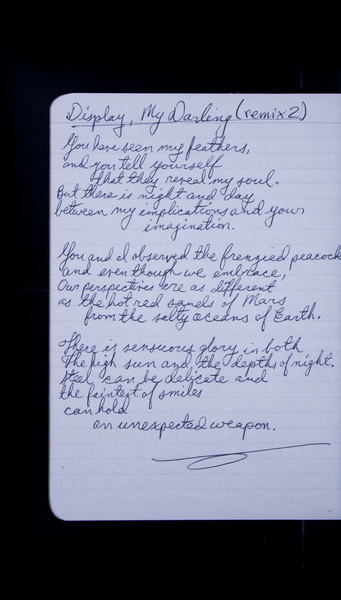 Display, My Darling (remix 2)
You have seen my feathers,
and you tell yourself
that they reveal my soul.
But there is night and day
between my implications and your
imagination.
You and I observed the frenzied peacock
and even though we embrace,
Our perspectives are as different
as the hot red sands of Mars
from the salty oceans of Earth.
There is sensuous glory in both
The high sun and the depths of night.
Steel can be delicate and
the faintest of smiles
can hold
an unexpected weapon.